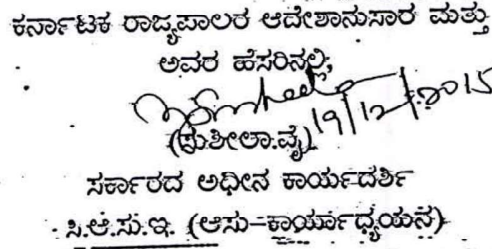 ಕರ್ನಾಟಕ ರಾಜ್ಯಪಾಲರ ಆದೇಶಾನುಸಾರ ಮತ್ತು
ಅವರ ಹೆಸರಿನಲ್ಲಿ,
19/12/2015
(ಸುಶೀಲಾ.ವೈ)
ಸರ್ಕಾರದ ಅಧೀನ ಕಾರ್ಯದರ್ಶಿ
ಸಿ.ಆ.ಸು.ಇ. (ಆಸು-ಕಾರ್ಯಾಧ್ಯಯನ)